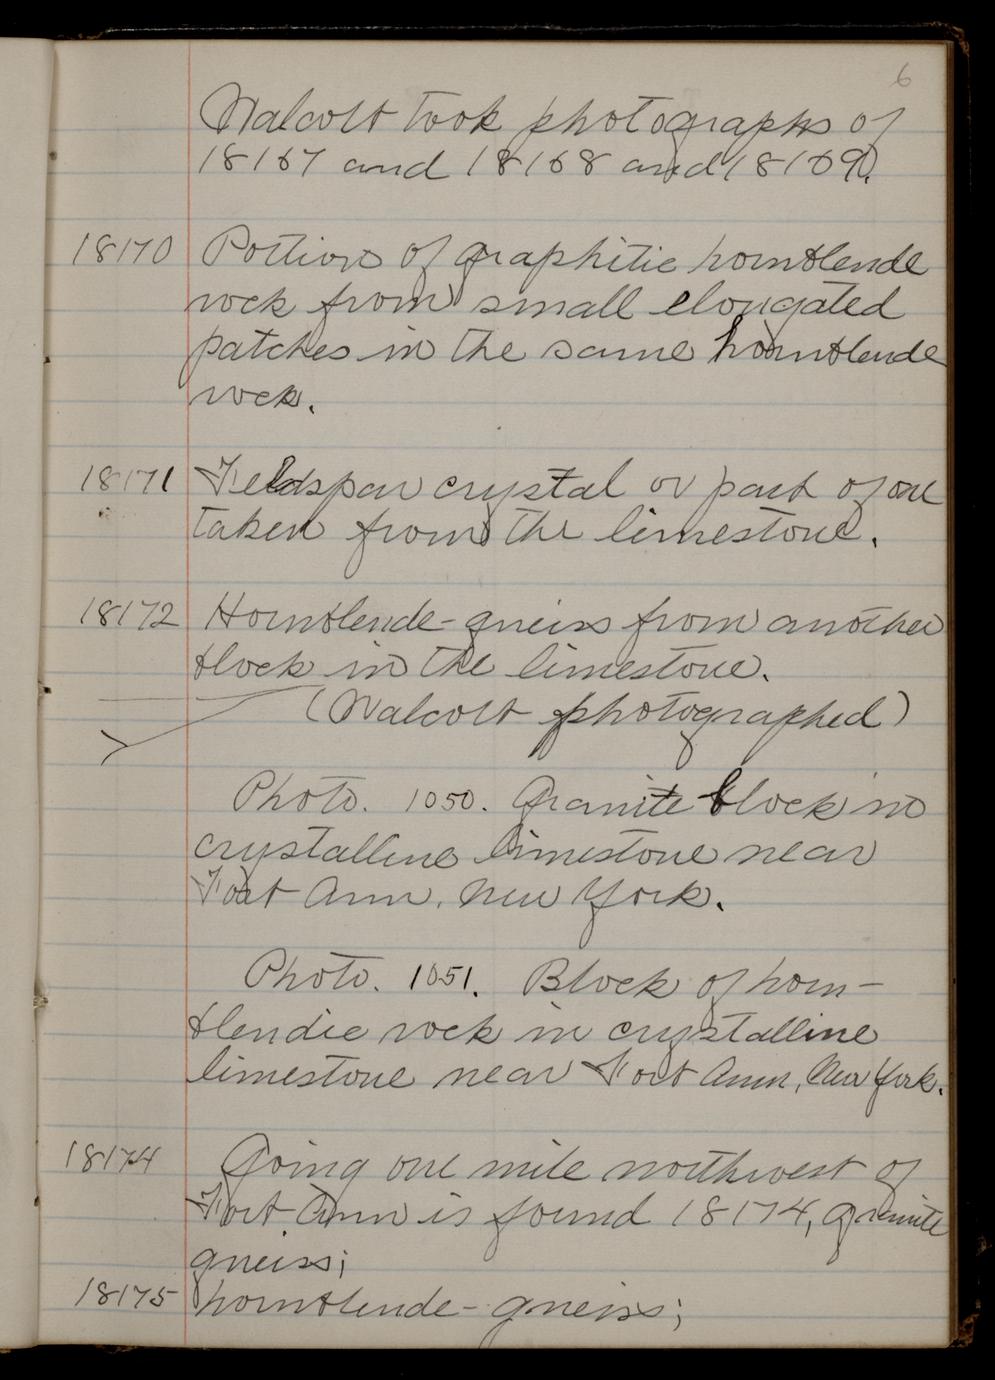 6
Walcott took photographs of
18167 and 18168 and 18169.
18170 Portions of graphitic hornblende
rock from small elongated
patches in the same hornblende
rock.
18171 Feldspar crystal or part of one
taken from the limestone.
18172 Hornblende-gneiss from another
block in the limestone.
(Walcott photographed)
Photo. 1050. Granite block in
crystalline limestone near
Fort Ann, New York.
Photo. 1051. Block of horn-
blendic rock in crystalline
limestone near Fort Ann, New York.
18174 Going one mile northwest of
Fort Ann is found 18174, granite
gneiss;
18175 hornblende-gneiss;